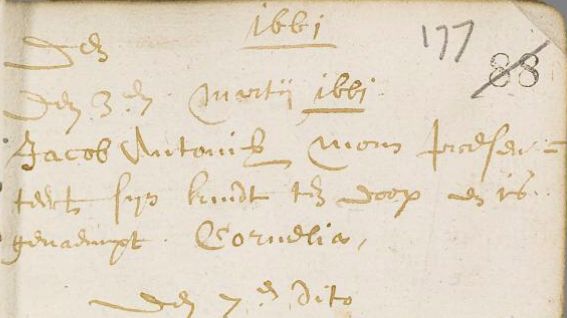 1661
177
88
Den
Den 3.en Martij 1661
Jacob Antonisz Mom presen=
teert sijn kindt ten doop en is
genaempt Cornelia,
Den 7.en dito